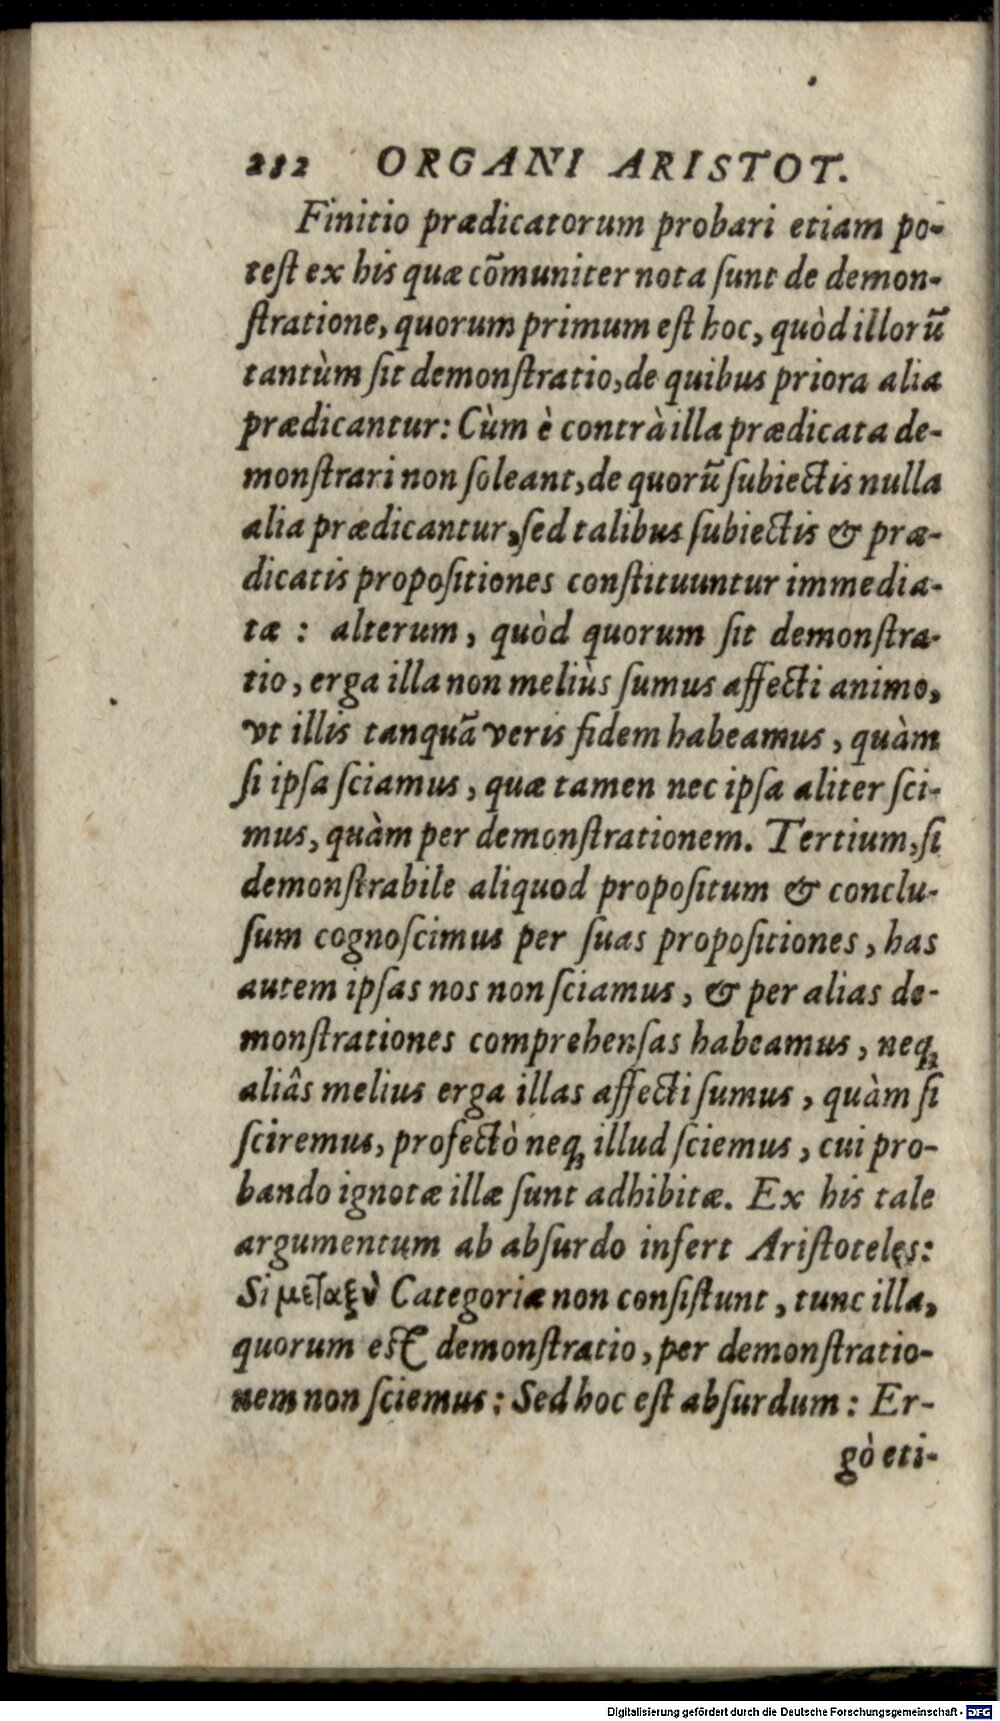 282 ORGANI ARISTOT.
Finitio prædicatorum probari etiam po-
teſt ex his quæ cōmuniter nota ſunt de demon-
ſtratione, quorum primum eſt hoc, quòd illorū
tantùm ſit demonſtratio, de quibus priora alia
prædicantur: Cùm è contrà illa prædicata de-
monſtrari non ſoleant, de quorū ſubiectis nulla
alia prædicantur, ſed talibus ſubiectis & præ-
dicatis propoſitiones conſtituuntur immedia-
tæ : alterum, quòd quorum ſit demonſtra-
tio, erga illa non meliùs ſumus affecti animo,
vt illis tanquā veris fidem habeamus, quàm
ſi ipſa ſciamus, quæ tamen nec ipſa aliter ſci-
mus, quàm per demonſtrationem. Tertium, ſi
demonſtrabile aliquod propoſitum & conclu-
ſum cognoſcimus per ſuas propoſitiones, has
autem ipſas nos non ſciamus, & per alias de-
monſtrationes comprehenſas habeamus, neq;
aliâs melius erga illas affecti ſumus, quàm ſi
ſciremus, profectò neq; illud ſciemus, cui pro-
bando ignotæ illæ ſunt adhibitæ. Ex his tale
argumentum ab abſurdo infert Ariſtoteles:
Si μεταξὺ Categoriæ non conſiſtunt, tunc illa,
quorum eſt demonſtratio, per demonſtratio-
nem non ſciemus: Sed hoc eſt abſurdum: Er-
gò eti-
Digitalisierung gefördert durch die Deutsche Forschungsgemeinschaft - DFG